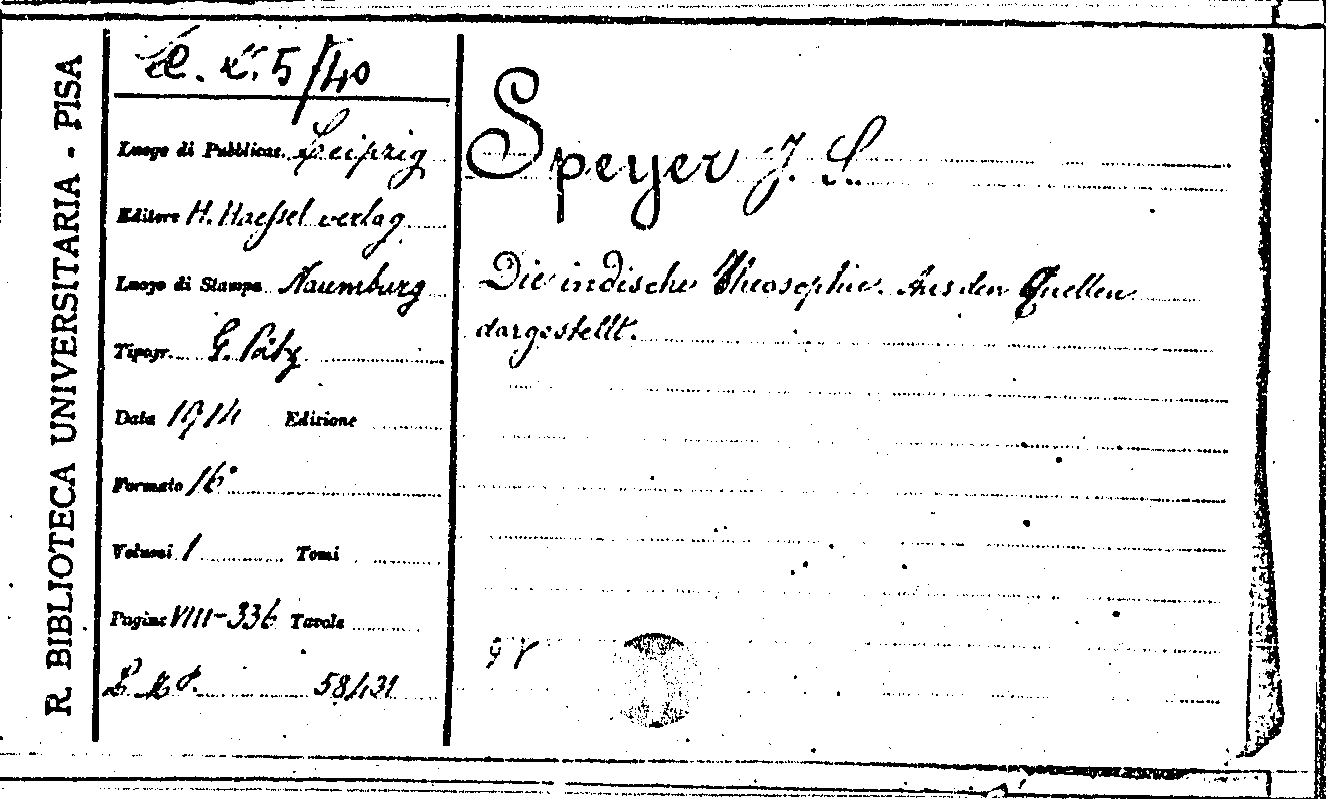 R. BIBLIOTECA UNIVERSITARIA - PISA
5/40
Luogo di Pubblicaz. Leipzig
Editore H. Haessel verlag
Luogo di Stampa Naumburg
Tipogr. G. Pätz
Data 1914 Edizione
Formato 16°
Volumi 1 Tomi
Pagine VIII-336 Tavole
58431
Speyer J. S.
Die indische Theosophie. Aus den Quellen
dargestellt.